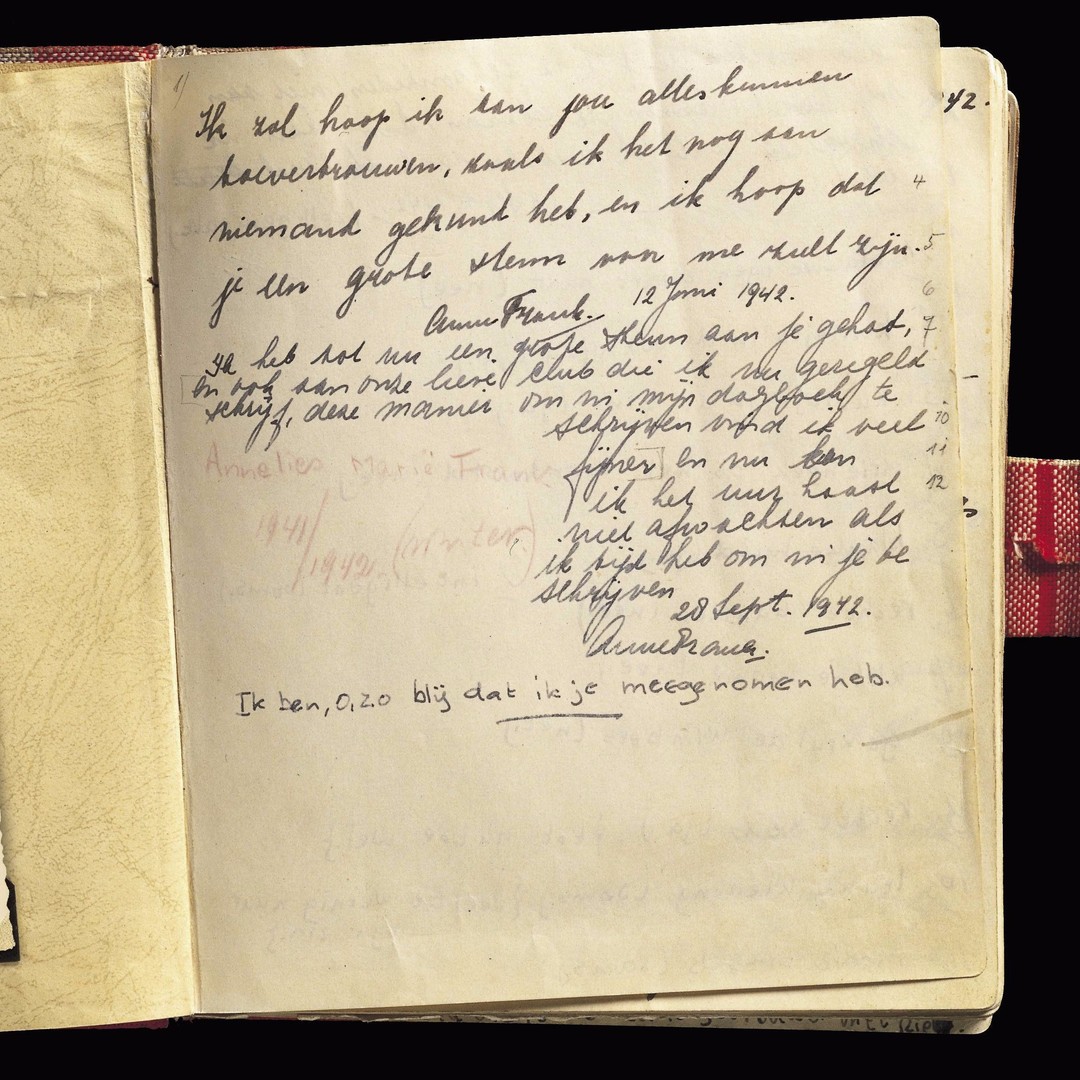 Ik zal hoop ik aan jou alles kunnen
toevertrouwen, zoals ik het nog aan
niemand gekund heb, en ik hoop dat
je een grote steun voor me zult zijn.
Anne Frank. 12 Juni 1942.
Ik heb tot nu een grote steun aan je gehad,
en ook aan onze lieve club die ik nu geregeld
schrijf, deze manier om in mijn dagboek te
schrijven vind ik veel
fijner en nu kan
ik het uur haast
niet afwachten als
ik tijd heb om in je te
schrijven
28 Sept. 1942.
Anne Frank.
Annelies Marie Frank
1941/
1942. (Winter)
Ik ben, O, zo blij dat ik je meegenomen heb.
42.
4
5
6
7
10
11
12